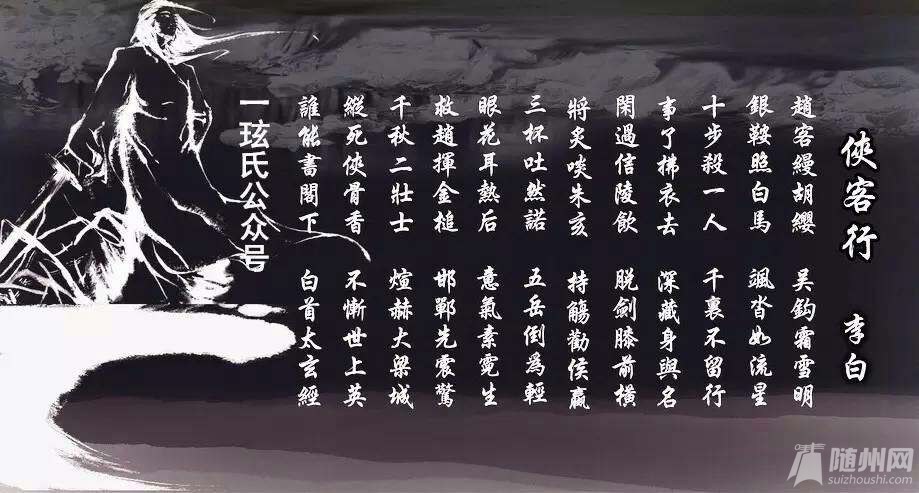 俠客行 李白
趙客縵胡纓 吴鈎霜雪明
銀鞍照白馬 颯沓如流星
十步殺一人 千裏不留行
事了拂衣去 深藏身與名
閑過信陵飲 脱劍膝前橫
將炙啖朱亥 持觴勸侯嬴
三杯吐然諾 五岳倒為輕
眼花耳熱后 意氣素霓生
救趙揮金槌 邯鄲先震驚
千秋二壯士 煊赫大梁城
縱死俠骨香 不慚世上英
誰能書閣下 白首太玄經
一玹氏公众号
随州网
suizhoushi.com